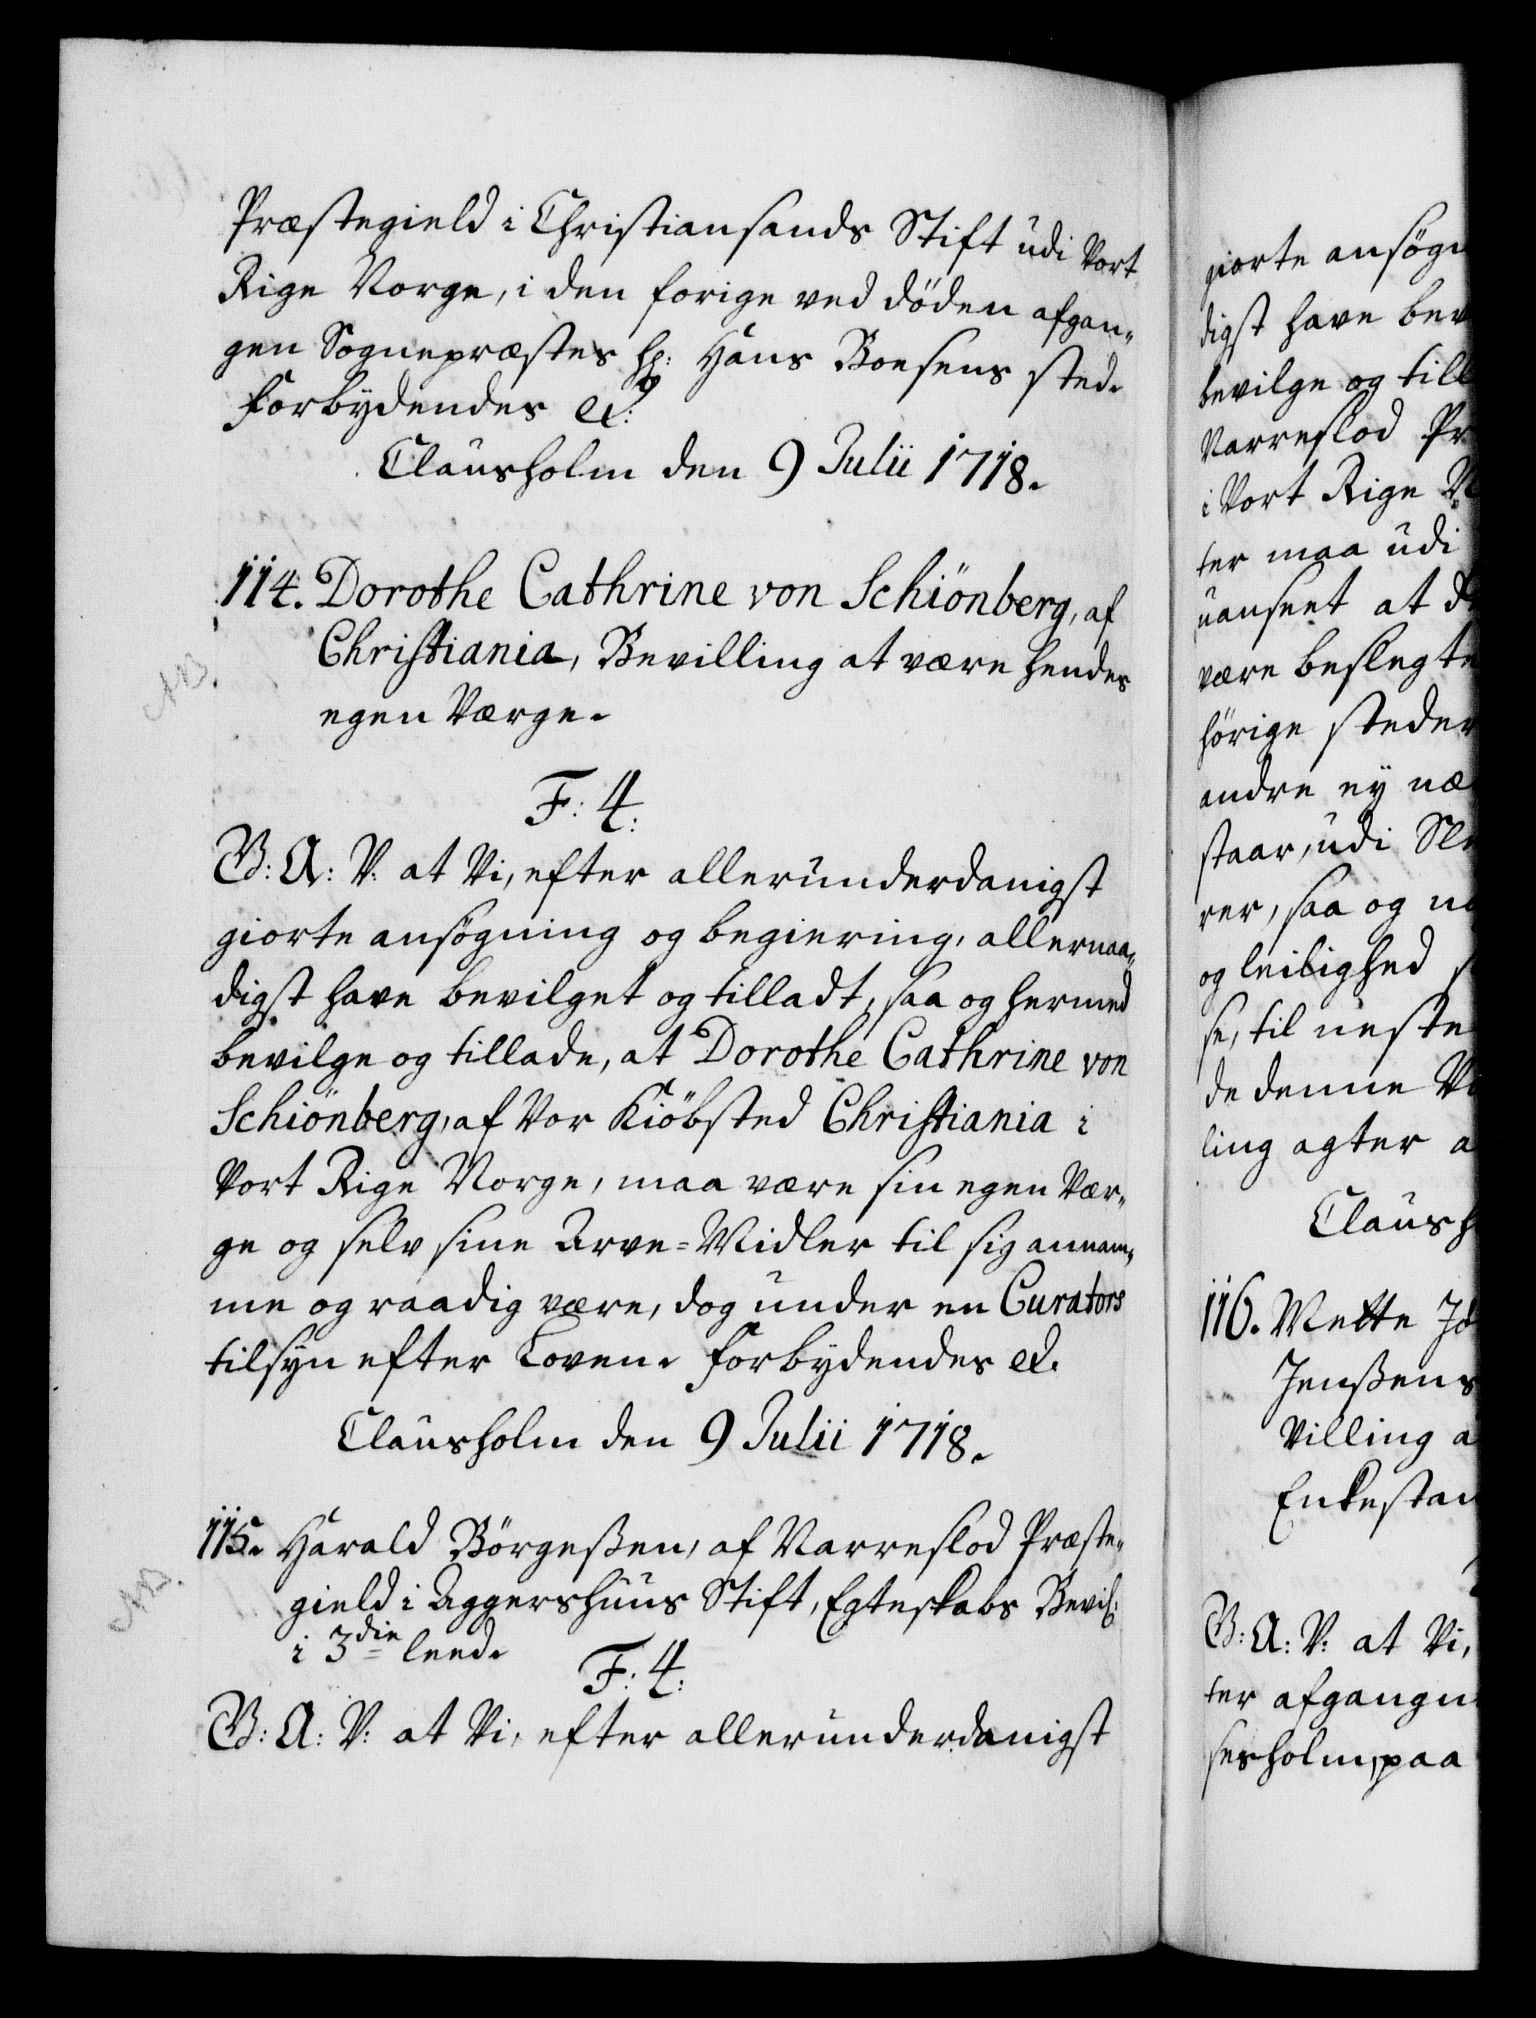 Præstegield i Christiansands Stift udi Vort
Rige Norge, i den forige ved döden afgan-
gen Sognepræstes hr: Hans Boesens sted.
Forbydendes etc:
Clausholm den 9 Julii 1718.
114. Dorothe Cathrine von Schiönberg, af
Christiania, Bevilling at være hendes
egen Værge.
NB.
F: 4.
G: A: V: at Vi, efter allerunderdanigst
giorte ansøgning og begiering, allernaa-
digst have bevilget og tilladt, saa og hermed
bevilge og tillade, at Dorothe Cathrine von
Schiönberg, af Vor Kiöbsted Christiania i
Vort Rige Norge, maa være sin egen Vær-
ge og selv sine Arve-Midler til sig annam-
me og raadig være, dog under en Curators
tilsyn efter Loven. Forbydendes etc.
Clausholm den 9 Julii 1718.
115. Harald Börgeßen, af Narreslod Præste-
gield i Aggershuus Stift, Egteskabs Bevil:
NB.
i 3die leed.
F: 4:
G: A: V: at Vi, efter allerunderdanigst
giorte ansøgn
digst have bev
bevilge og till
Narreslod Pr
i Vort Rige N
ter maa udi
uanseet at d
være beslegte
hörige steder
andre ey næ
staar, udi Sle
rer, saa og
og leilighed
se, til neste
de denne
ling agter a
Claush
116. Mette
Jenßens
Villing a
Enkestan
G: A: V: at Vi,
ter afgangn
sesholm, paa